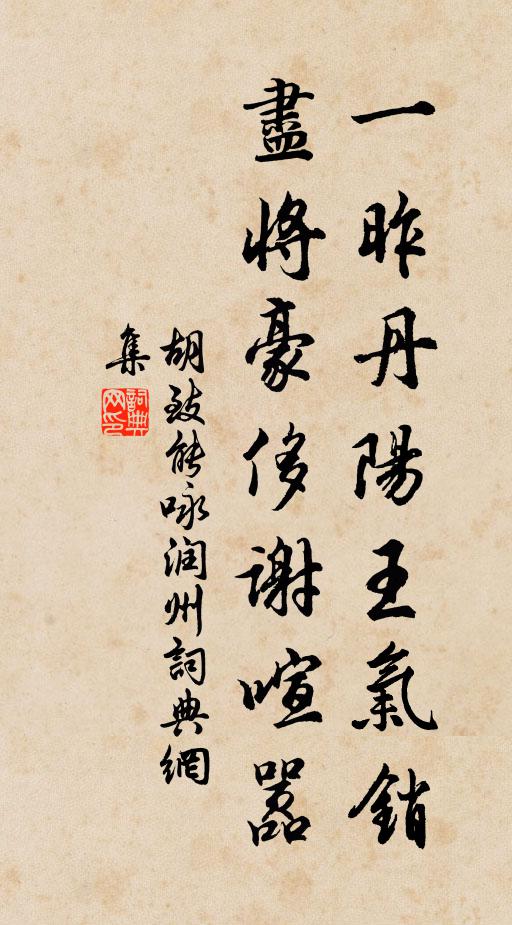 一昨丹陽王氣銷
盡將豪侈謝喧嚣
胡致能咏润州詞典網
集
詞典
网印